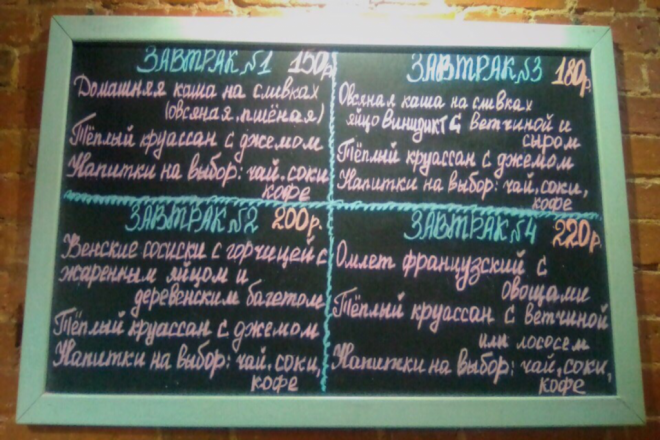 ЗАВТРАК №1 150р
Домашняя каша на сливках
(овсяная, пшёная)
Тёплый круассан с джемом
Напитки на выбор: чай, соки,
кофе
ЗАВТРАК №2 200р.
Венские сосиски с горчицей с
жаренным яйцом и
деревенским багетом
Тёплый круассан с джемом
Напитки на выбор: чай, соки,
кофе
ЗАВТРАК №3 180р.
Овсяная каша на сливках
яйцо Винидикт с ветчиной и
сыром
Тёплый круассан с джемом
Напитки на выбор: чай, соки,
кофе
ЗАВТРАК №4 220р.
Омлет французский с
овощами
Тёплый круассан с ветчиной
или лососем
Напитки на выбор: чай, соки,
кофе